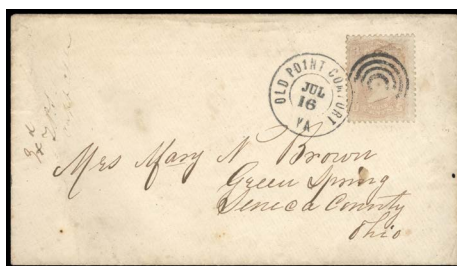 OLD POINT COMFORT
JUL
16
VA
Mrs Mary N Brown
Green Spring
Seneca County
Ohio